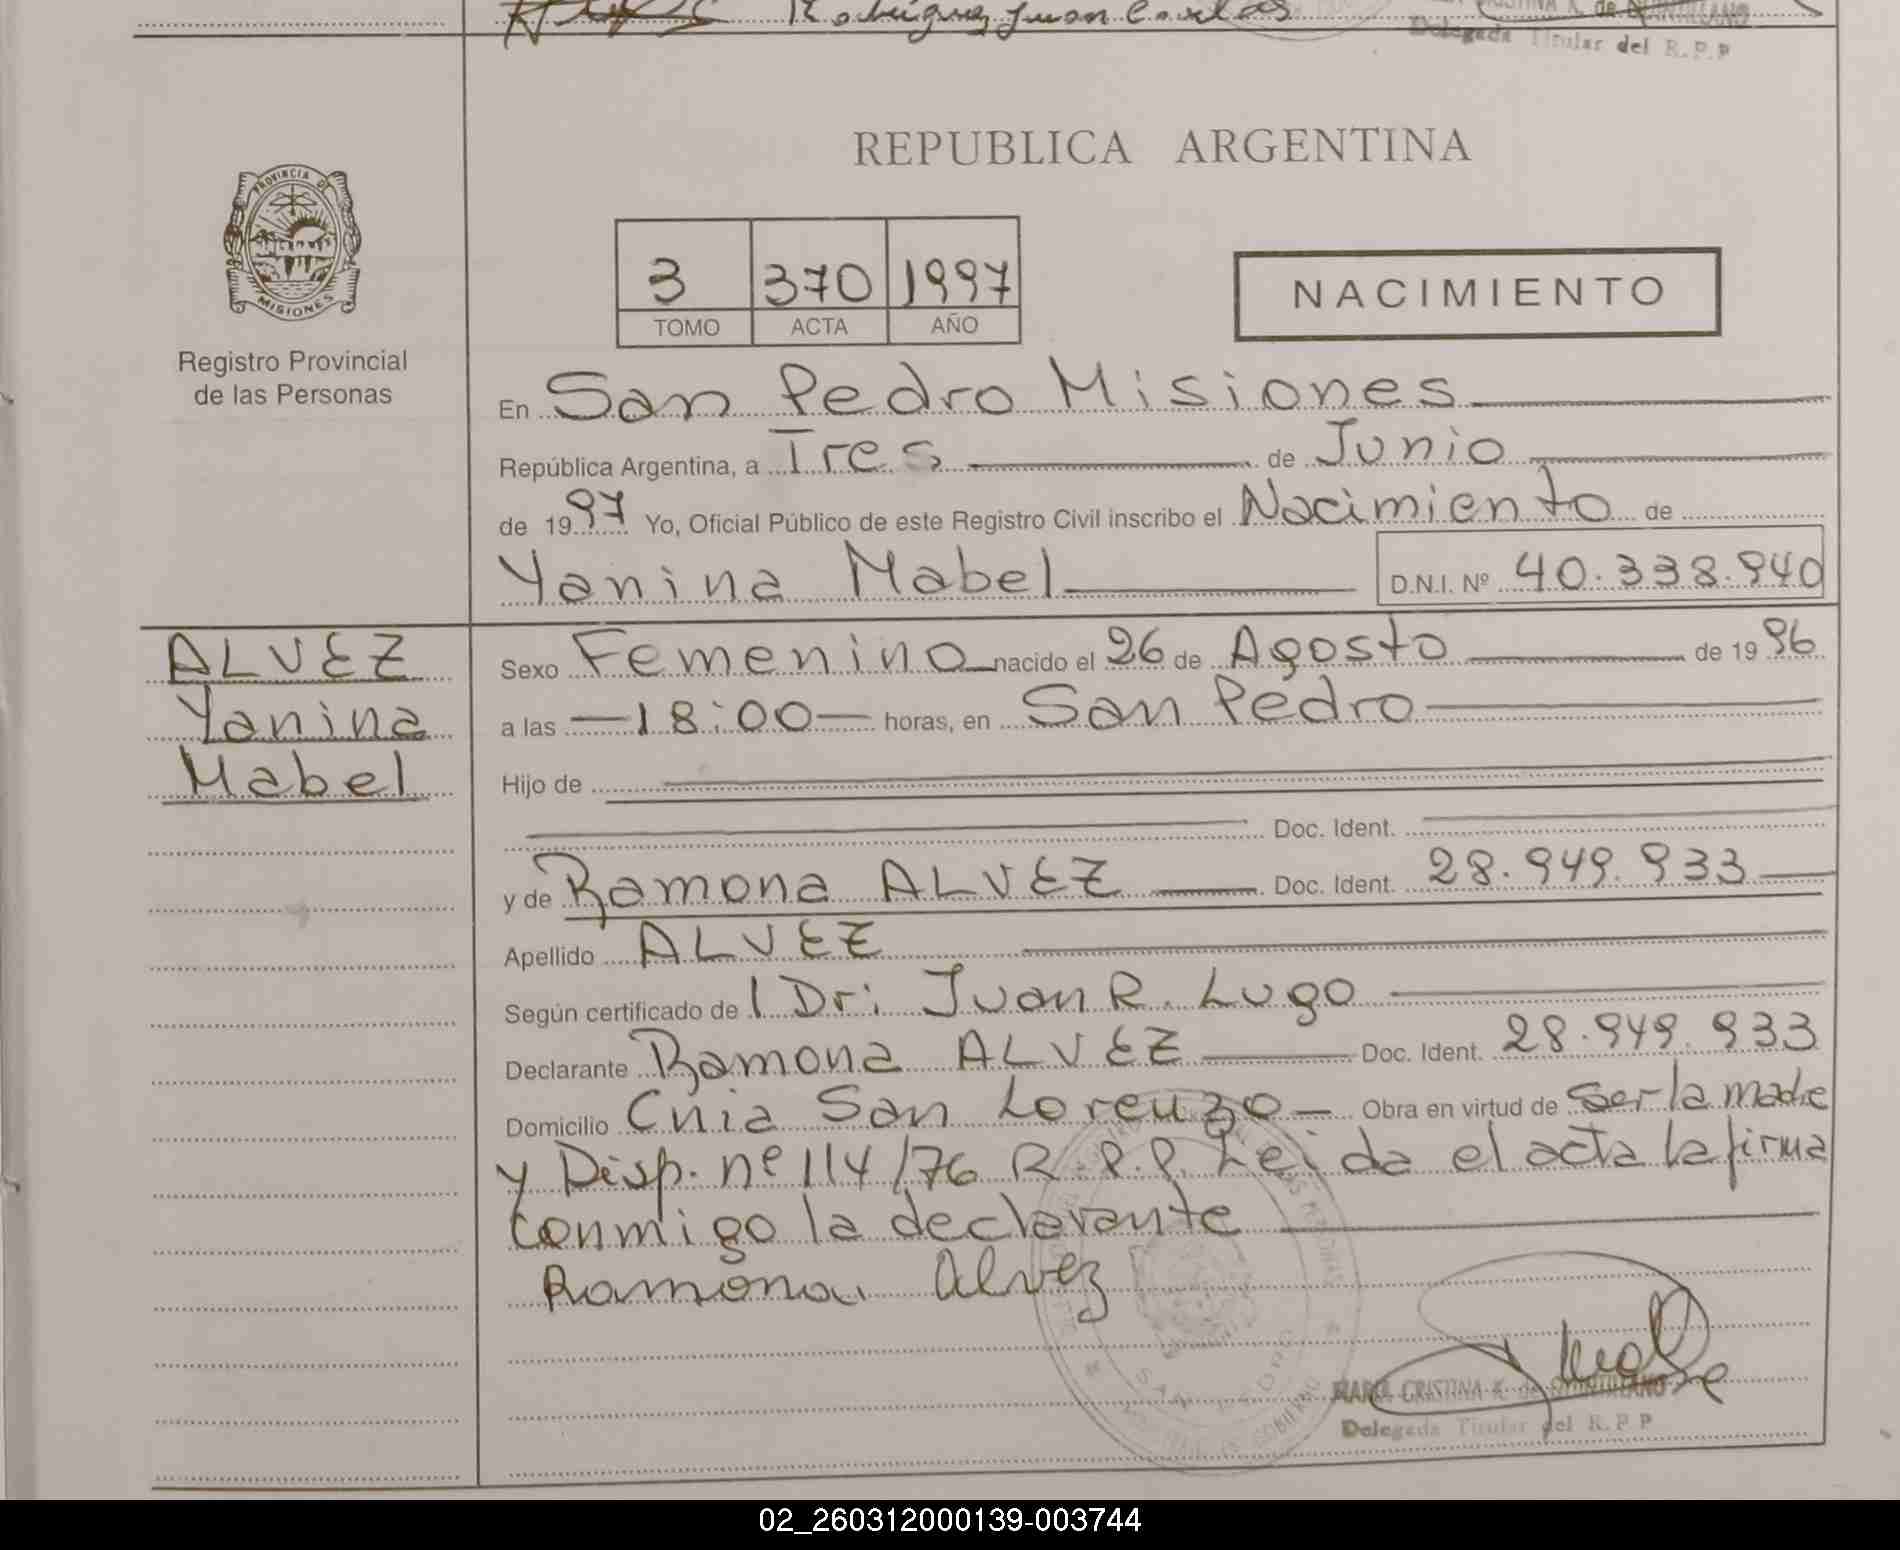 Rodriguez Juan Carlos
Delegada Titular del R.P.P
PROVINCIA DE
MISIONES
Registro Provincial
de las Personas
REPUBLICA ARGENTINA
3 370 1997
TOMO ACTA AÑO
NACIMIENTO
En San Pedro Misiones
República Argentina, a Tres de Junio
de 1997 Yo, Oficial Público de este Registro Civil inscribo el Nacimiento de
Yanina Mabel D.N.I. Nº 40.338.940
ALVEZ
Yanina
Mabel
Sexo Femenino nacido el 26 de Agosto de 1996
a las 18:00 horas, en San Pedro
Hijo de
Doc. Ident.
y de Ramona ALVEZ Doc. Ident. 28.949.933
Apellido ALVEZ
Según certificado de l Dr: Juan R. Lugo
Declarante Ramona ALVEZ Doc. Ident. 28.949.933
Domicilio Cnia San Lorenzo Obra en virtud de ser la madre
y Disp. nº 114/76 R.P.P. Leida el acta la firma
conmigo la declarante
Ramona Alvez
CRISTINA K. de
Delegada Titular del R.P.P
02_260312000139-003744